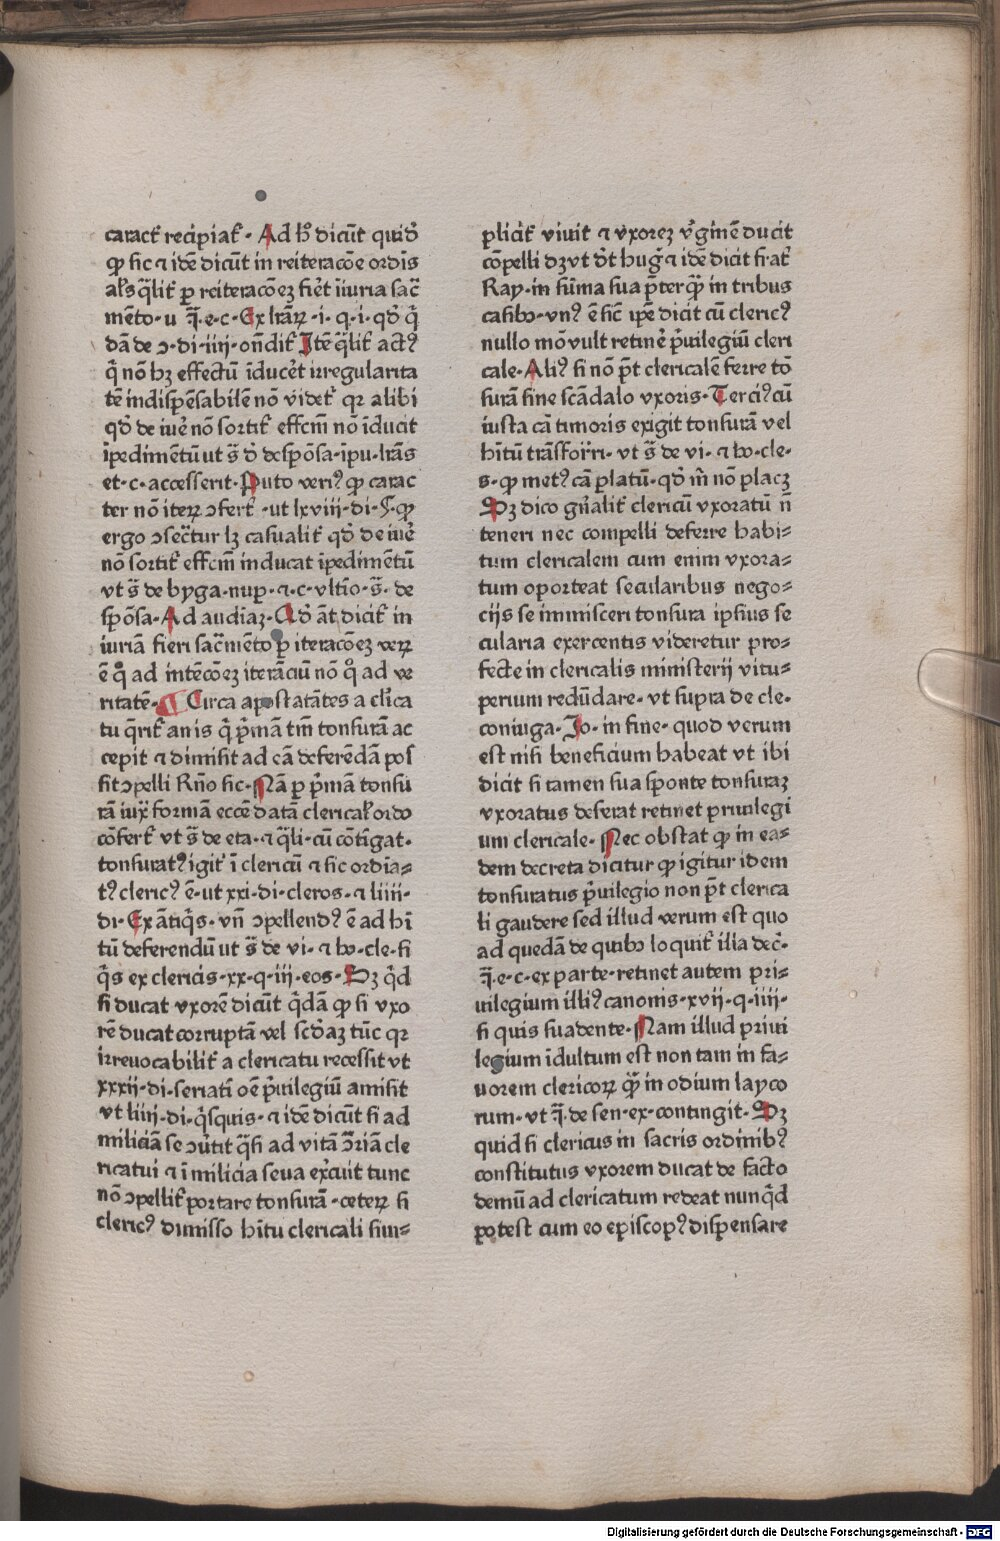 caract̄ recipiat̄· Ad h̄ dicūt quid̄
ꝙ sic ⁊ idē dicūt in reiteracōe ordīs
al's q̄lit̄ ꝑ reiteracōeꝫ fiēt iīuria sac̄
mēto· u q̄·e·c·Ex lrāꝝ·i·q·i·qd̄ q̄
dā de ↄ·di·iiij·on̄dit̄ Itē q̄lit̄ actꝰ
q̄ nō hꝫ effectū īducēt irregularita
tē indispēsabilē nō videt̄ qꝛ alibi
qd̄ de iuē nō sortit̄ effcm̄ nō īducit
īpedimētū ut s̄ d̄ despōsa·īpu·lrās
et·c·accesserit·Puto veriꝰ ꝙ carac
ter nō iteꝝ ↄfert̄·ut lxviij·di·§·ꝙ
ergo ↄsec̄tur lꝫ casualit̄ qd̄ de iuē
nō sortit̄ effcm̄ inducat īpedimētū
vt s̄ de byga·nup·⁊·c·vltīo·s̄·de
spōsa·Ad audiaꝫ·Qd̄ āt dicit̄ in
iuriā fieri sac̄mēto ꝑ iteracōeꝫ veꝝ
ē qͦ ad intēcōeꝫ iterāciū nō qͦ ad ve
ritatē· ¶ Circa apostatātes a cl'ica
tu q̄rit̄ an is q̄ p̄mā tm̄ tonsurā ac
cepit ⁊ dimisit ad cā deferēdā pos
sit ↄpelli Rn̄o sic·Nā ꝑ p̄mā tonsu
rā iux̄ formā eccē datā clerical' ordo
cōfert̄ vt s̄ de eta·⁊ q̄li·cū cōtīgat·
tonsuratꝰ igit̄ ī clericū ⁊ sic ordīa-
tꝰ clericꝰ ē·ut xxi·di·cleros·⁊ liiii·
di·Ex ātiq̄s·vn̄ ↄpellendꝰ ē ad hī
tū deferendū ut s̄ de vi·⁊ ho·cle·si
q̄s ex clericis·xx·q·iij·eos·Sꝫ q̄d
si ducat vxorē dicūt q̄dā ꝙ si vxo
rē ducat corruptā vel scd̄aꝫ tūc qꝛ
irreuocabilit̄ a clericatu recessit vt
xxxij·di·seriatī oē p̄uilegiū amisit
vt liiij·di·q̄squis·⁊ idē dicūt si ad
miliciā se ↄūtit q̄si ad vitā ↄ̄riā cle
ricatui ⁊ ī milicia seua ex̄cuit tunc
nō ↄpellit̄ portare tonsurā·ceteꝝ si
clericꝰ dimisso hītu clericali sim-
plicit̄ viuit ⁊ vxoreꝫ v̄ginē ducit
cōpelli dꝫ vt d̄t huḡ ⁊ idē dicit frat̄
Ray·in sūma sua p̄terꝙ̄ in tribus
casibꝰ·vnꝰ ē sic̄ ip̄e dicit cū clericꝰ
nullo mō vult retinē p̄uilegiū cleri
cale·Aliꝰ si nō p̄t clericalē ferre tō
surā sine scādalo vxoris·Terciꝰ cū
iusta cā timoris exigit tonsurā vel
hītū trāsforīri·vt s̄ de vi·⁊ ho·cle·
s·ꝙ metꝰ cā platū·qd̄ m̄ nō placꝫ
Sꝫ dico gn̄alit̄ clericū vxoratū n̄
teneri nec compelli deferre habi-
tum clericalem cum enim vxora-
tum oporteat secularibus nego-
cijs se immisceri tonsura ipsius se
cularia exercentis videretur pro-
fecte in clericalis ministerij vitu-
perium redūdare·vt supra de cle·
coniuga·Io·in fine·quod verum
est nisi beneficium habeat vt ibi
dicit si tamen sua sponte tonsuraꝫ
vxoratus deferat retinet priuilegi
um clericale·Nec obstat ꝙ in ea-
dem decreta dicitur ꝙ igitur idem
tonsuratus p̄uilegio non p̄t clerica
li gaudere sed illud verum est quo
ad quedā de quibꝰ loquit̄ illa dec̄·
q̄·e·c·ex parte·retinet autem pri-
uilegium illiꝰ canonis·xvij·q·iiij·
si quis suadente·Nam illud priui
legium īdultum est non tam in fa-
uorem clericoꝝ ꝙ̄ in odium layco
rum·vt q̄·de sen·ex·contingit·Sꝫ
quid si clericus in sacris ordinibꝰ
constitutus vxorem ducat de facto
demū ad clericatum redeat nunq̄d
potest cum eo episcopꝰ dispensare
Digitalisierung gefördert durch die Deutsche Forschungsgemeinschaft - DFG